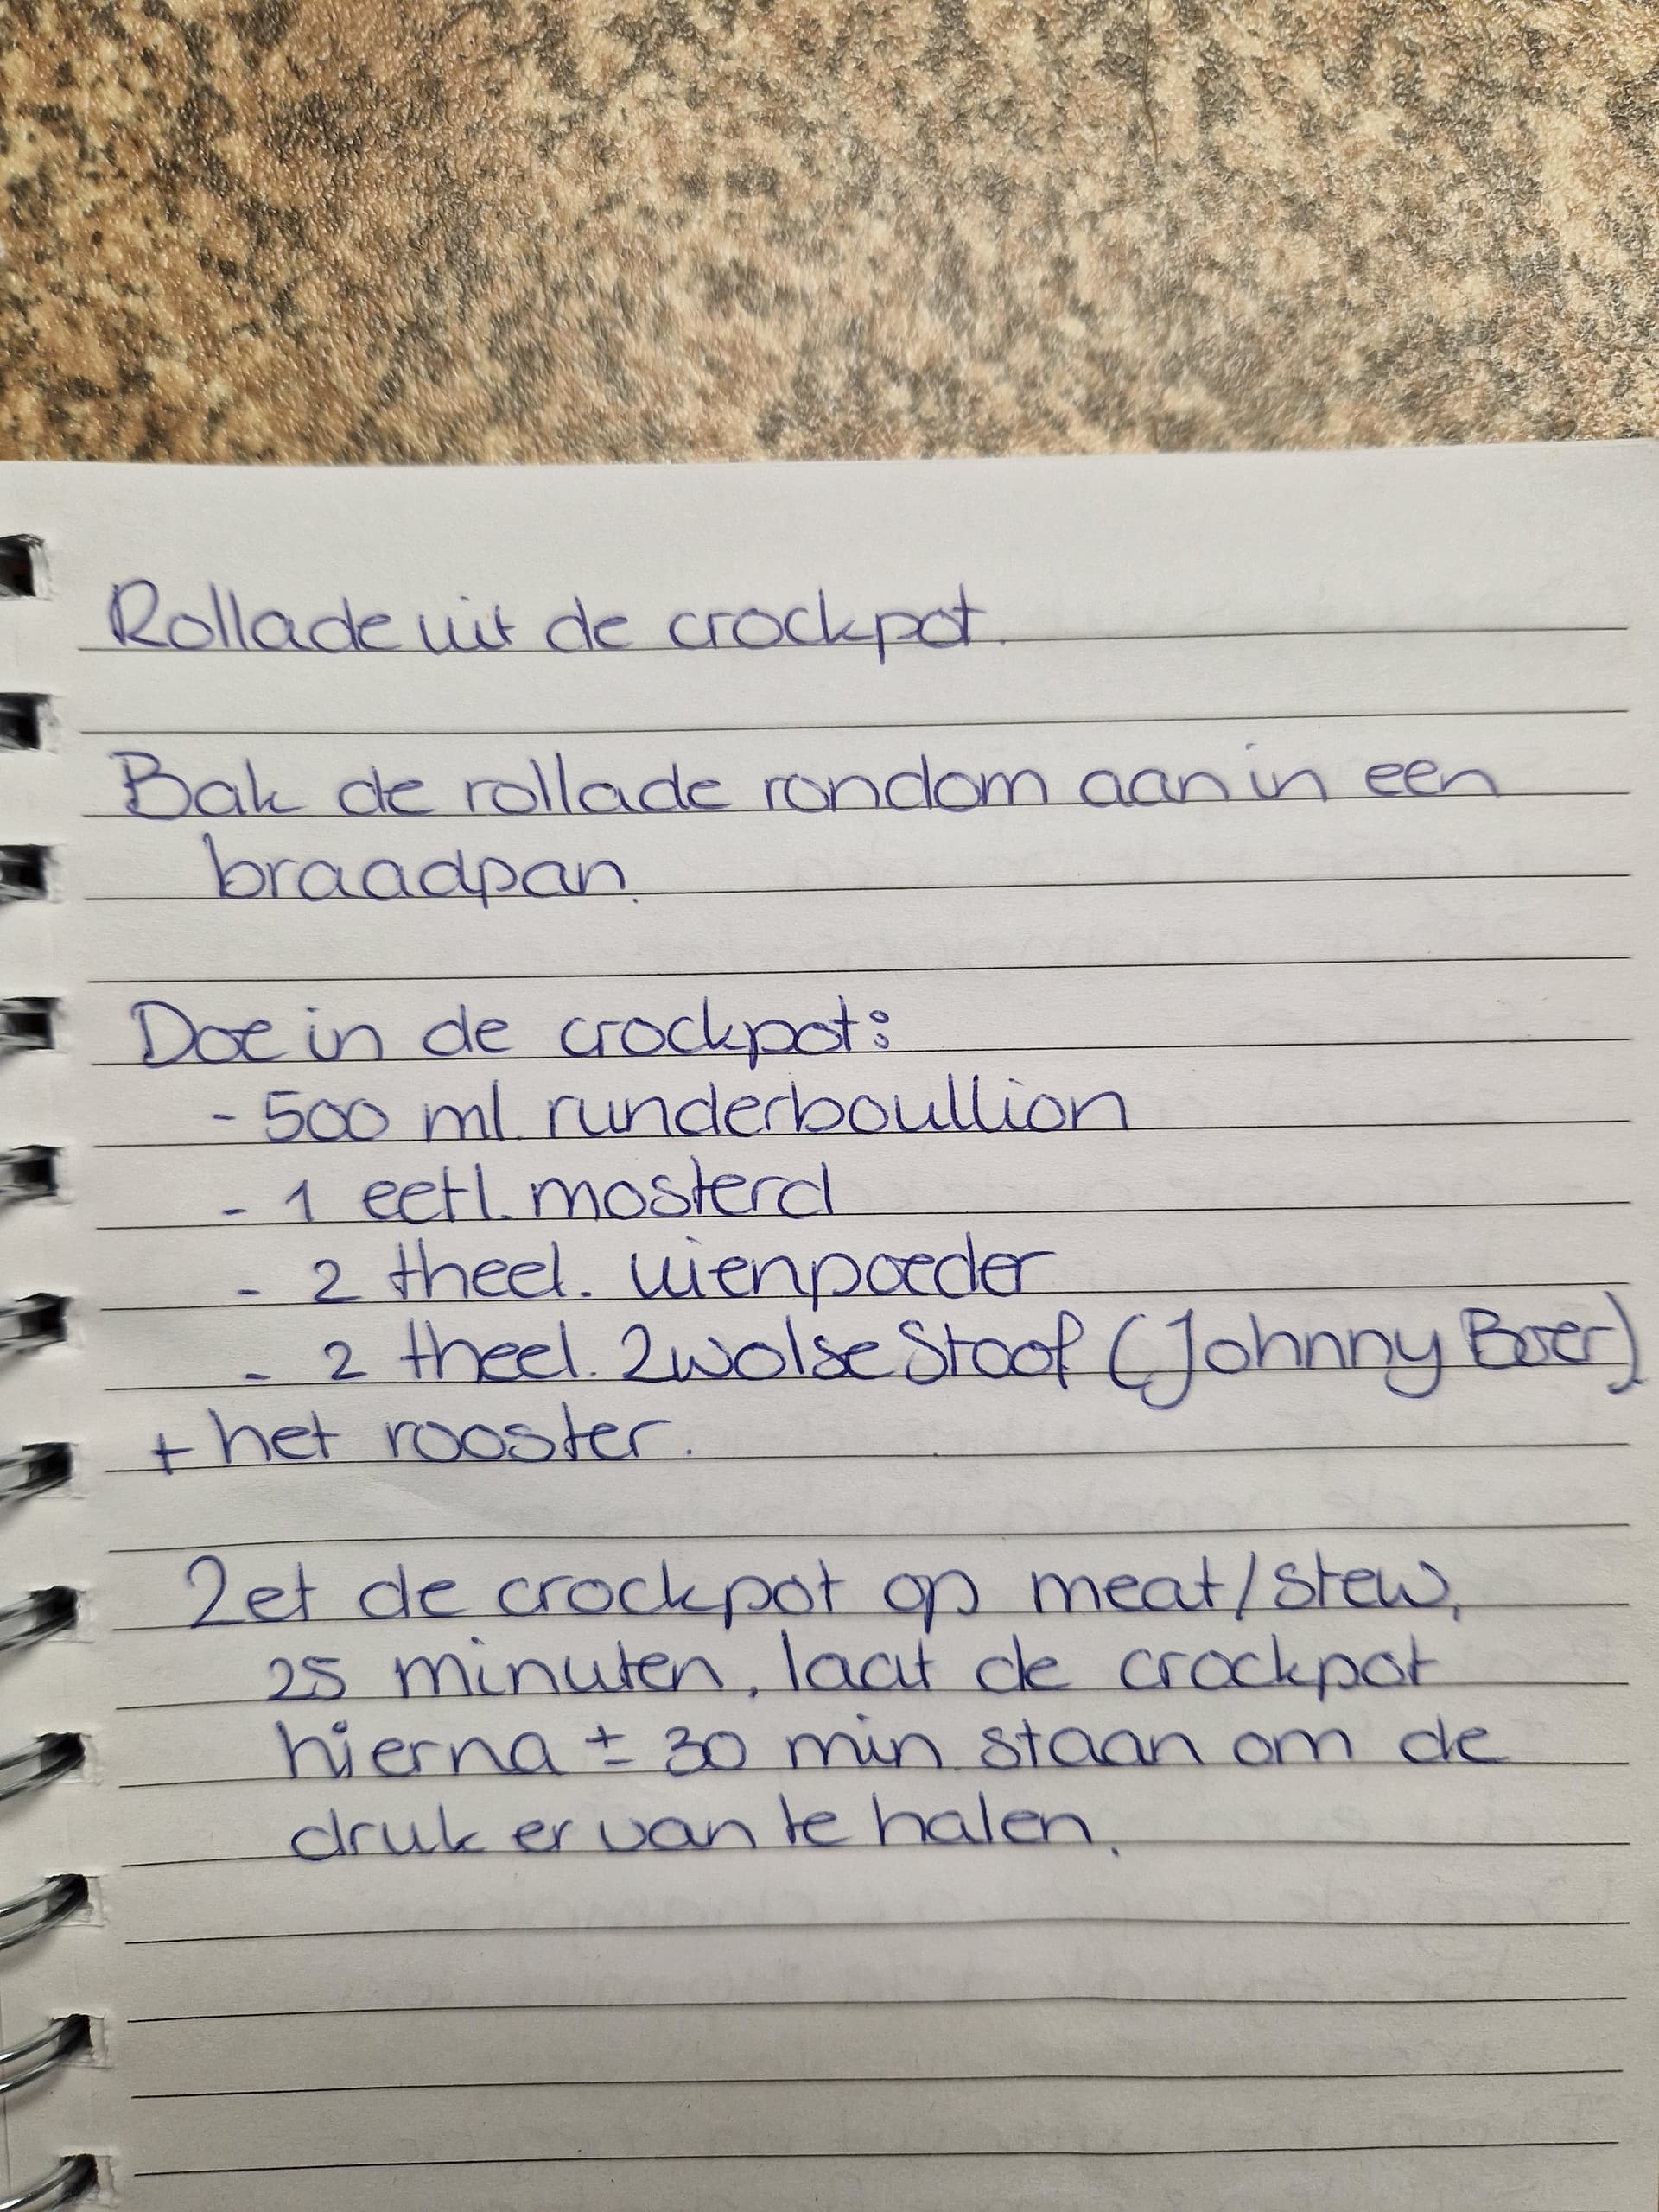 Rollade uit de crockpot.
Bak de rollade rondom aan in een
braadpan.
Doe in de crockpot:
- 500 ml. runderboullion
- 1 eetl. mosterd
- 2 theel. uienpoeder
- 2 theel. Zwolse Stoof (Johnny Boer)
+ het rooster.
Zet de crockpot op meat/stew,
25 minuten, laat de crockpot
hierna ± 30 min. staan om de
druk er van te halen.